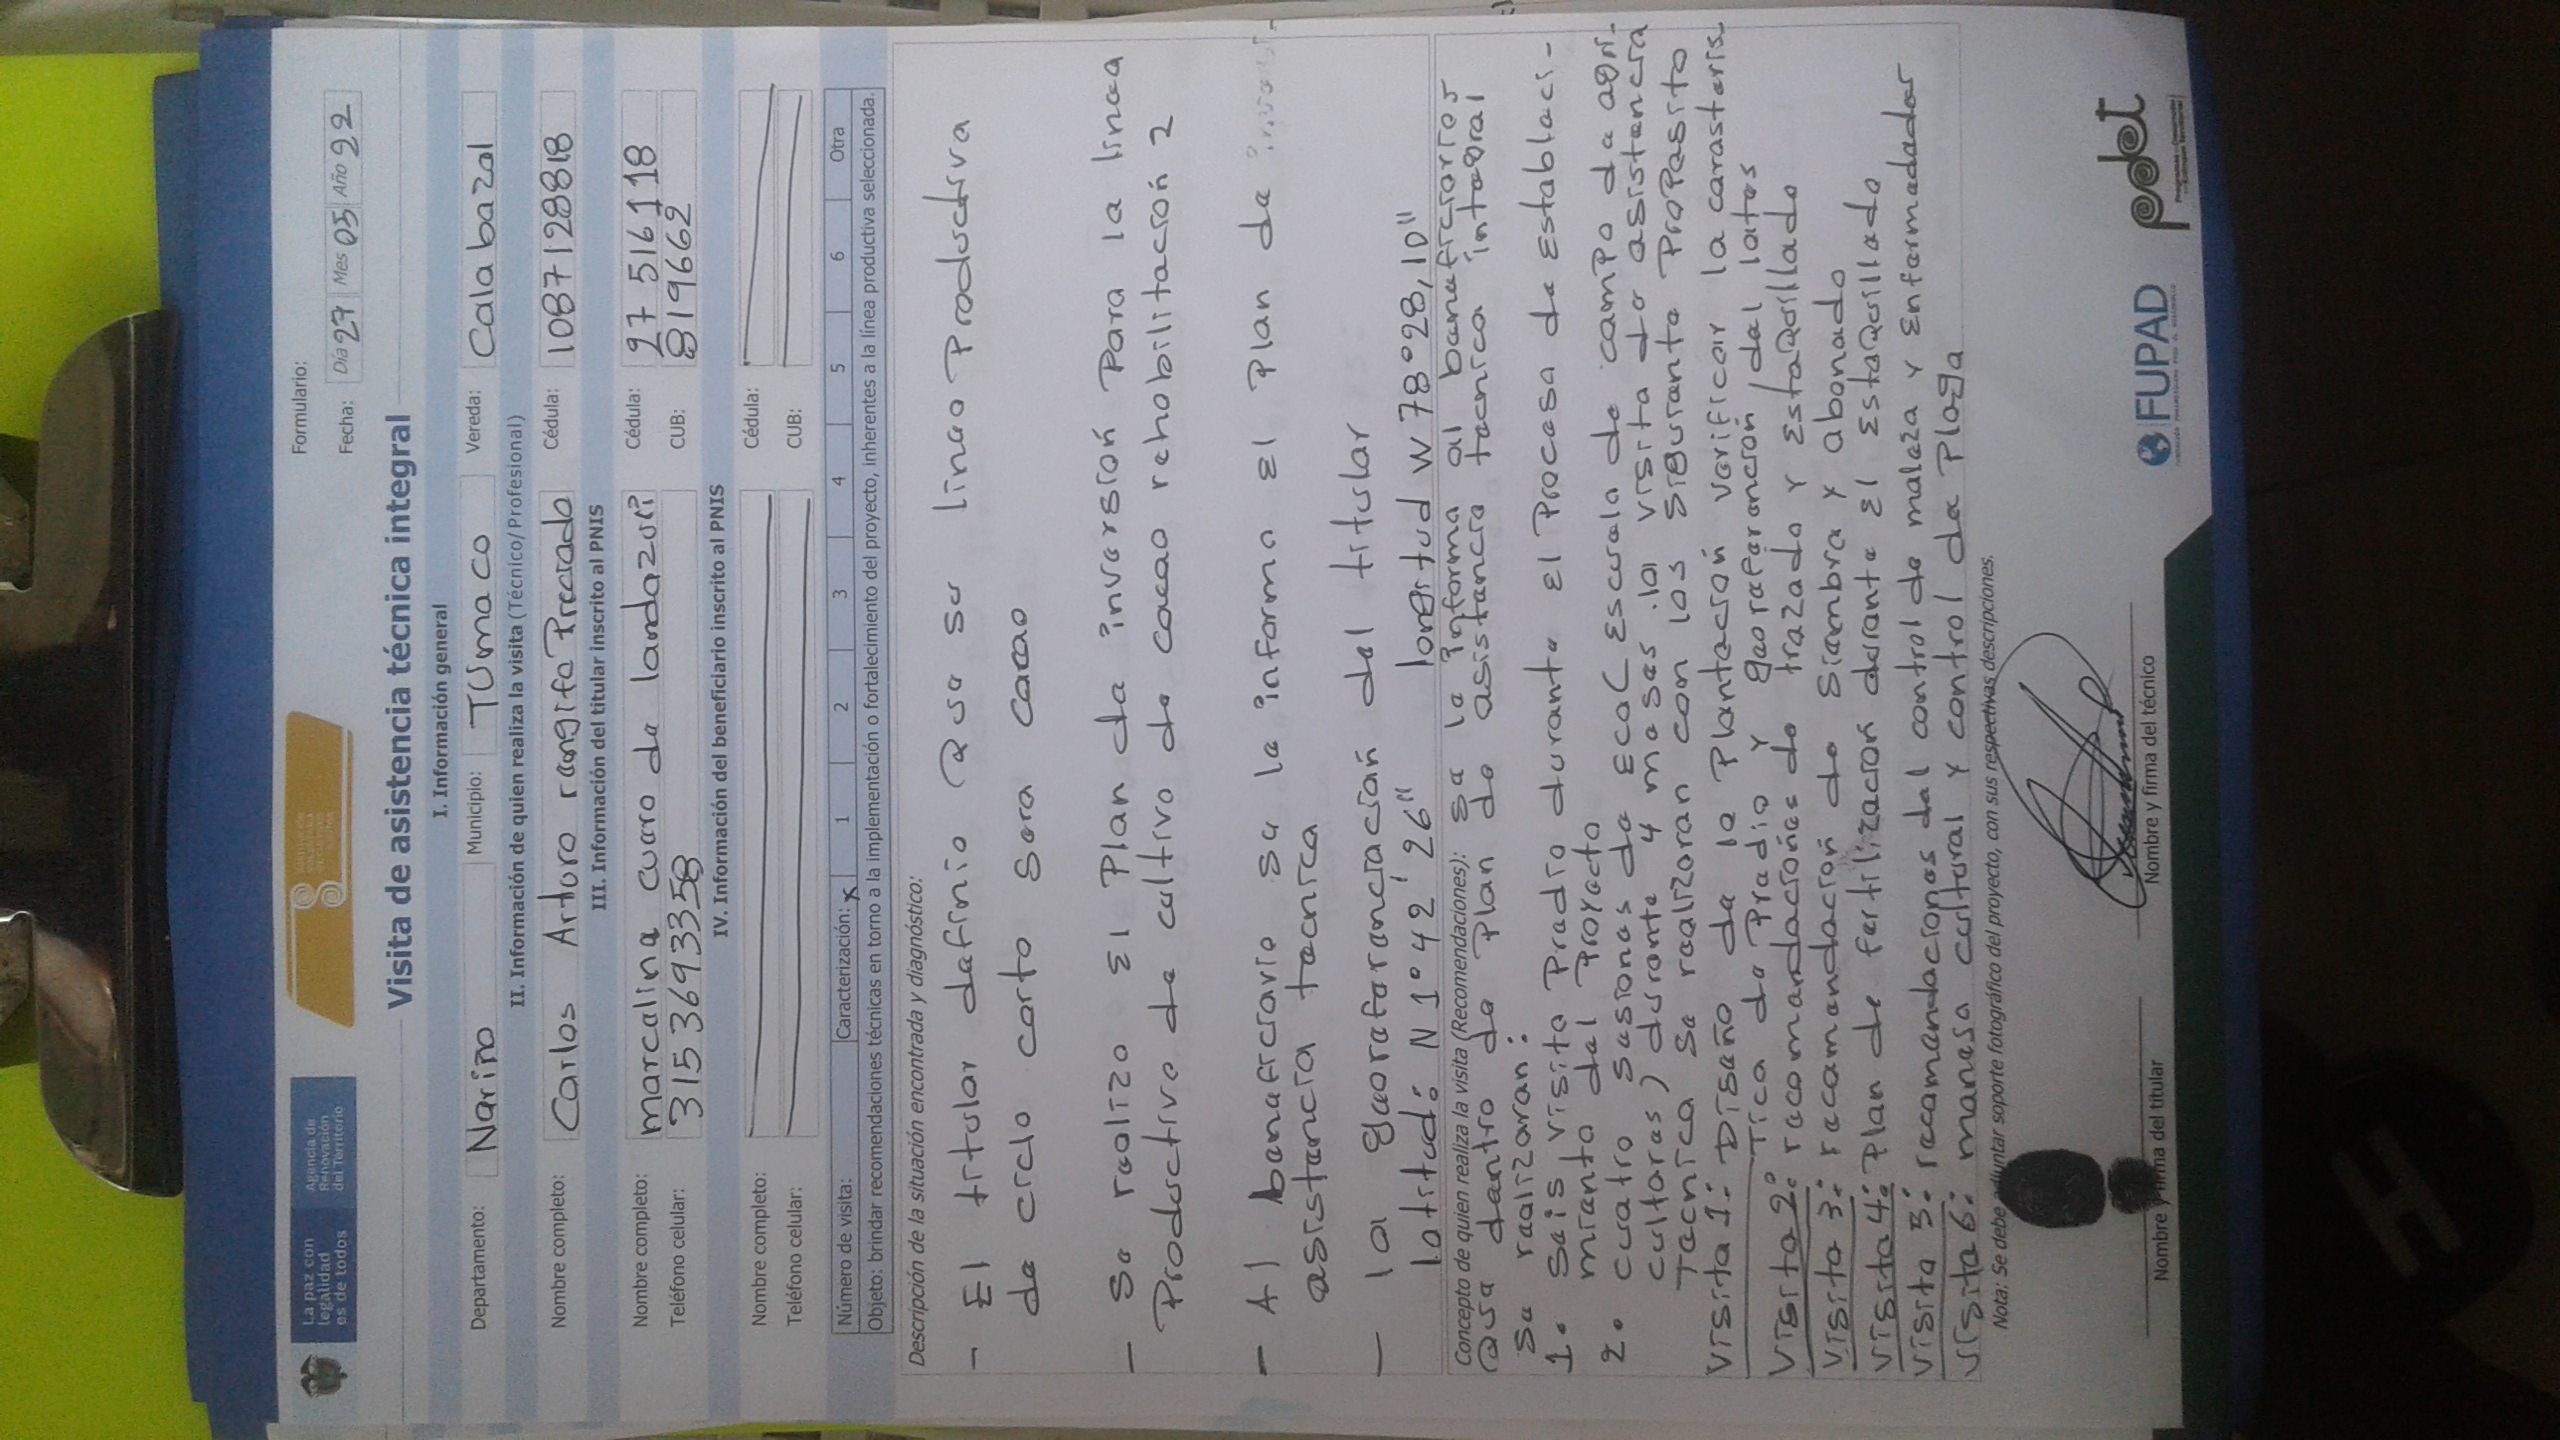 La paz con
legalidad
es de todos
Agencia de
Renovación
del Territorio
Formulario:
Fecha: Día 27 Mes 05 Año 22
Visita de asistencia técnica integral
I. Información general
Departamento: Nariño Municipio: TUmaco Vereda: Calabazal
II. Información de quien realiza la visita (Técnico/Profesional)
Nombre completo: Carlos Arturo rangifo Preciado Cédula: 1087128818
III. Información del titular inscrito al PNIS
Nombre completo: marcalina cuaro de landazuri Cédula: 27516118
Teléfono celular: 3153693358 CUB: 819662
IV. Información del beneficiario inscrito al PNIS
Nombre completo: Cédula:
Teléfono celular: CUB:
Número de visita: Caracterización: x 1 2 3 4 5 6 Otra
Objeto: brindar recomendaciones técnicas en torno a la implementación o fortalecimiento del proyecto, inherentes a la línea productiva seleccionada.
Descripción de la situación encontrada y diagnóstico:
- El titular dafinio Qua su linea Productiva
da ciclo corto sara cacao
- Sa raalizo El Plan da invarsion Para la linaa
Productiva da cultivo da cacao rehabilitacion 2
- Al banaficiario sa la informa El Plan da
asistancia tacnica
- la gaorafaranciacian dal titular
latitud: N 1°42'26" longitud W 78°28,10"
Concepto de quien realiza la visita (Recomendaciones): sa la informa al banaficiarior
Qua dantro da Plan da asistancia tacnica intagral
sa raalizaran:
1. sais visita Pradio duranta El Procasa da Establaci-
mianto dal Proyacto
2. cuatro sasionas da ECA( Escuala da campo da agri-
cultoras) duranta 4 masas .la visita da asistancia
Tacnica sa raalizaran con los siguranta ProPasito
Visita 1: Disaño da la Plantacion varificar la carastaris
Tica da Pradio y gaorafarancion dal latas
Visita 2: racomandacionas da trazado y EstaQuillado
Visita 3: racamandacion da siambra y abonado
Visita 4: Plan de fartilizacion duranta El EstaQuillado
Visita 5: racamandacionas dal control da maleza y Enfarmadadas
Visita 6: manasa cultural y control da Plaga
Nota: Se debe adjuntar soporte fotográfico del proyecto, con sus respectivas descripciones.
Nombre y firma del titular
Nombre y firma del técnico
FUPAD
pdet